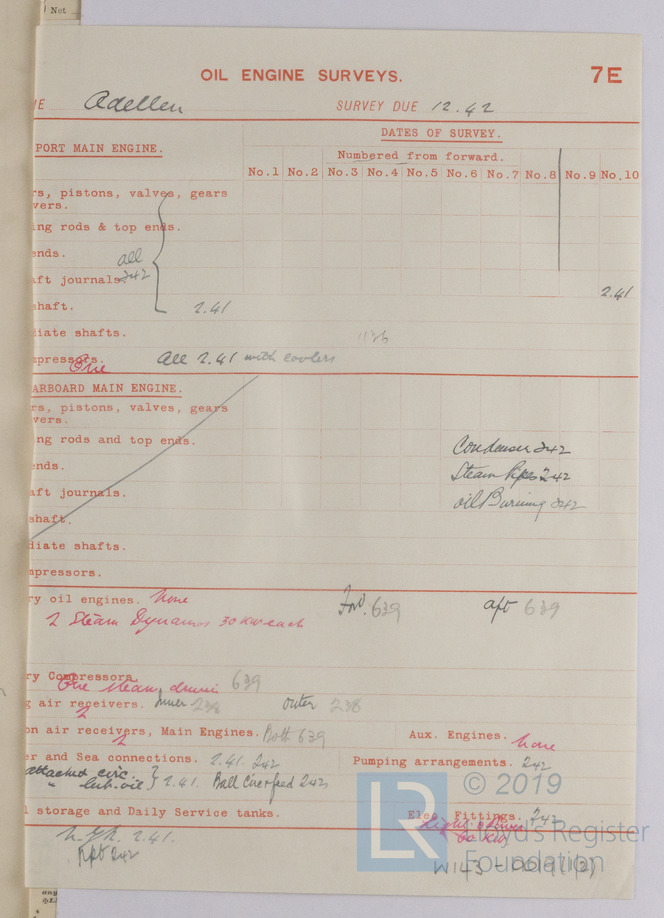 Not
OIL ENGINE SURVEYS. 7E
E Adellen SURVEY DUE 12.42
DATES OF SURVEY.
PORT MAIN ENGINE.
Numbered from forward.
No.1 No.2 No.3 No.4 No.5 No.6 No.7 No.8 No.9 No.10
rs, pistons, valves, gears
vers.
ing rods & top ends.
ends. all
aft journals. 242
2.41
shaft. 2.41
diate shafts. 1136
mpressors. all 2.41 with coolers
One
ARBOARD MAIN ENGINE.
rs, pistons, valves, gears
vers.
ing rods and top ends.
Condenser 242
ends.
Steam Pipes 242
aft journals.
oil Burning 242
shaft.
diate shafts.
mpressors.
ry oil engines. None
Ford. 639 aft 639
2 Steam Dynamos 30 KW each
ry Compressors.
One steam driven 639
g air receivers. Inner 238 outer 238
2
on air receivers, Main Engines. Both 639 Aux. Engines. None
2
er and Sea connections. 2.41. 242 Pumping arrangements. 242
attached circ.
" lub. oil } 2.41. Ball Circ & feed 242
l storage and Daily Service tanks. Elec. Fittings. 242
Light & Power
60 KW
2.41.
Rpt 242
© 2019
LR Lloyd's Register
Foundation
W143-0019(1(2)